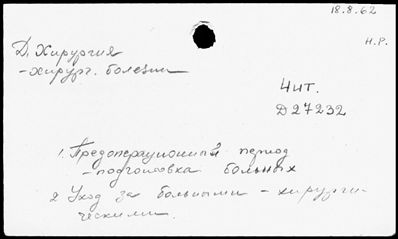 18.8.62
Н.Р.
Д. Хирургия
- хирург. болезни
Чит.
Д27232
1. Предоперационный период
- подготовка больных
2. Уход за больными - хирурги-
ческими.